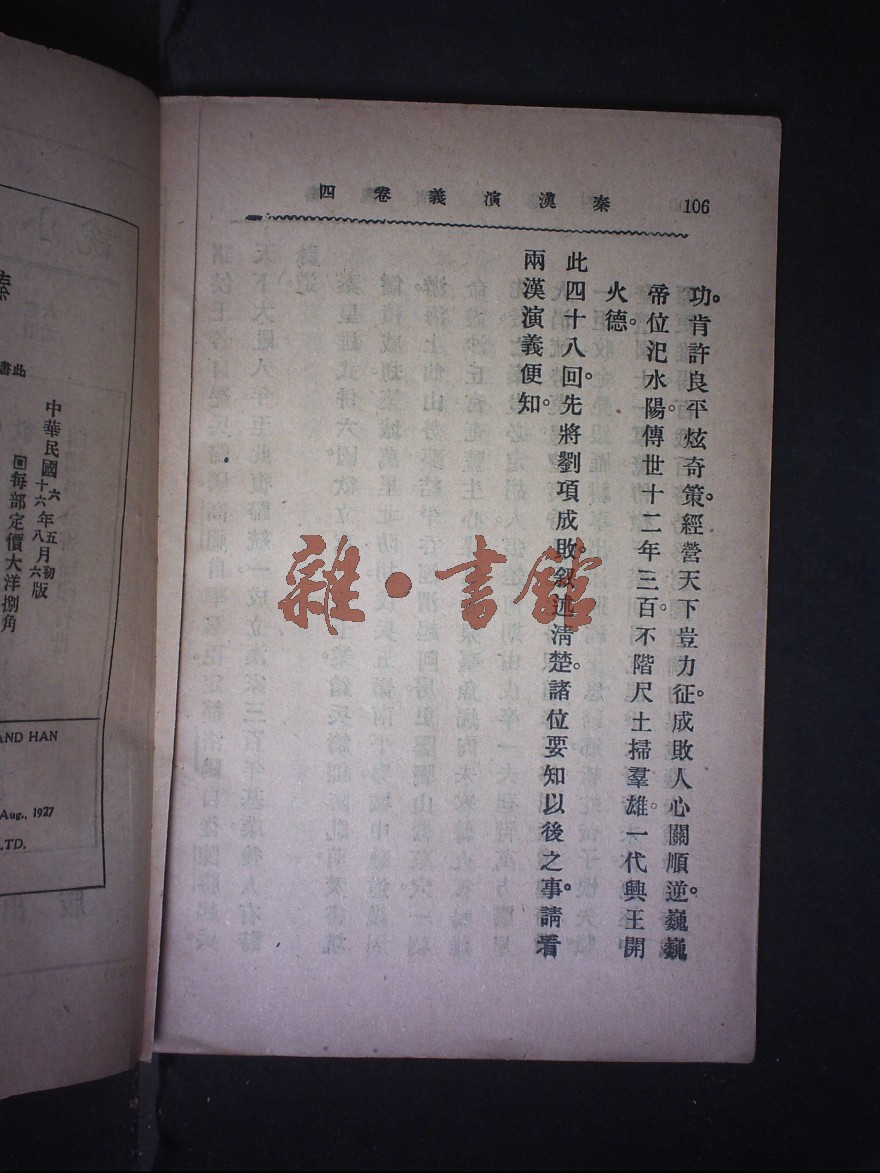 106
秦漢演義卷四
功。肯許良平炫奇策。經營天下豈力征。成敗人心關順逆。巍巍
帝位汜水陽。傳世十二年三百。不階尺土掃羣雄。一代興王開
火德。
此四十八回。先將劉項成敗。叙述淸楚。諸位要知以後之事。請看
兩漢演義便知。
雜·書館
秦
此書
中華民國
六年五月初版
十六年八月六版
每部定價大洋捌角
AND HAN
Aug., 1927
LTD.